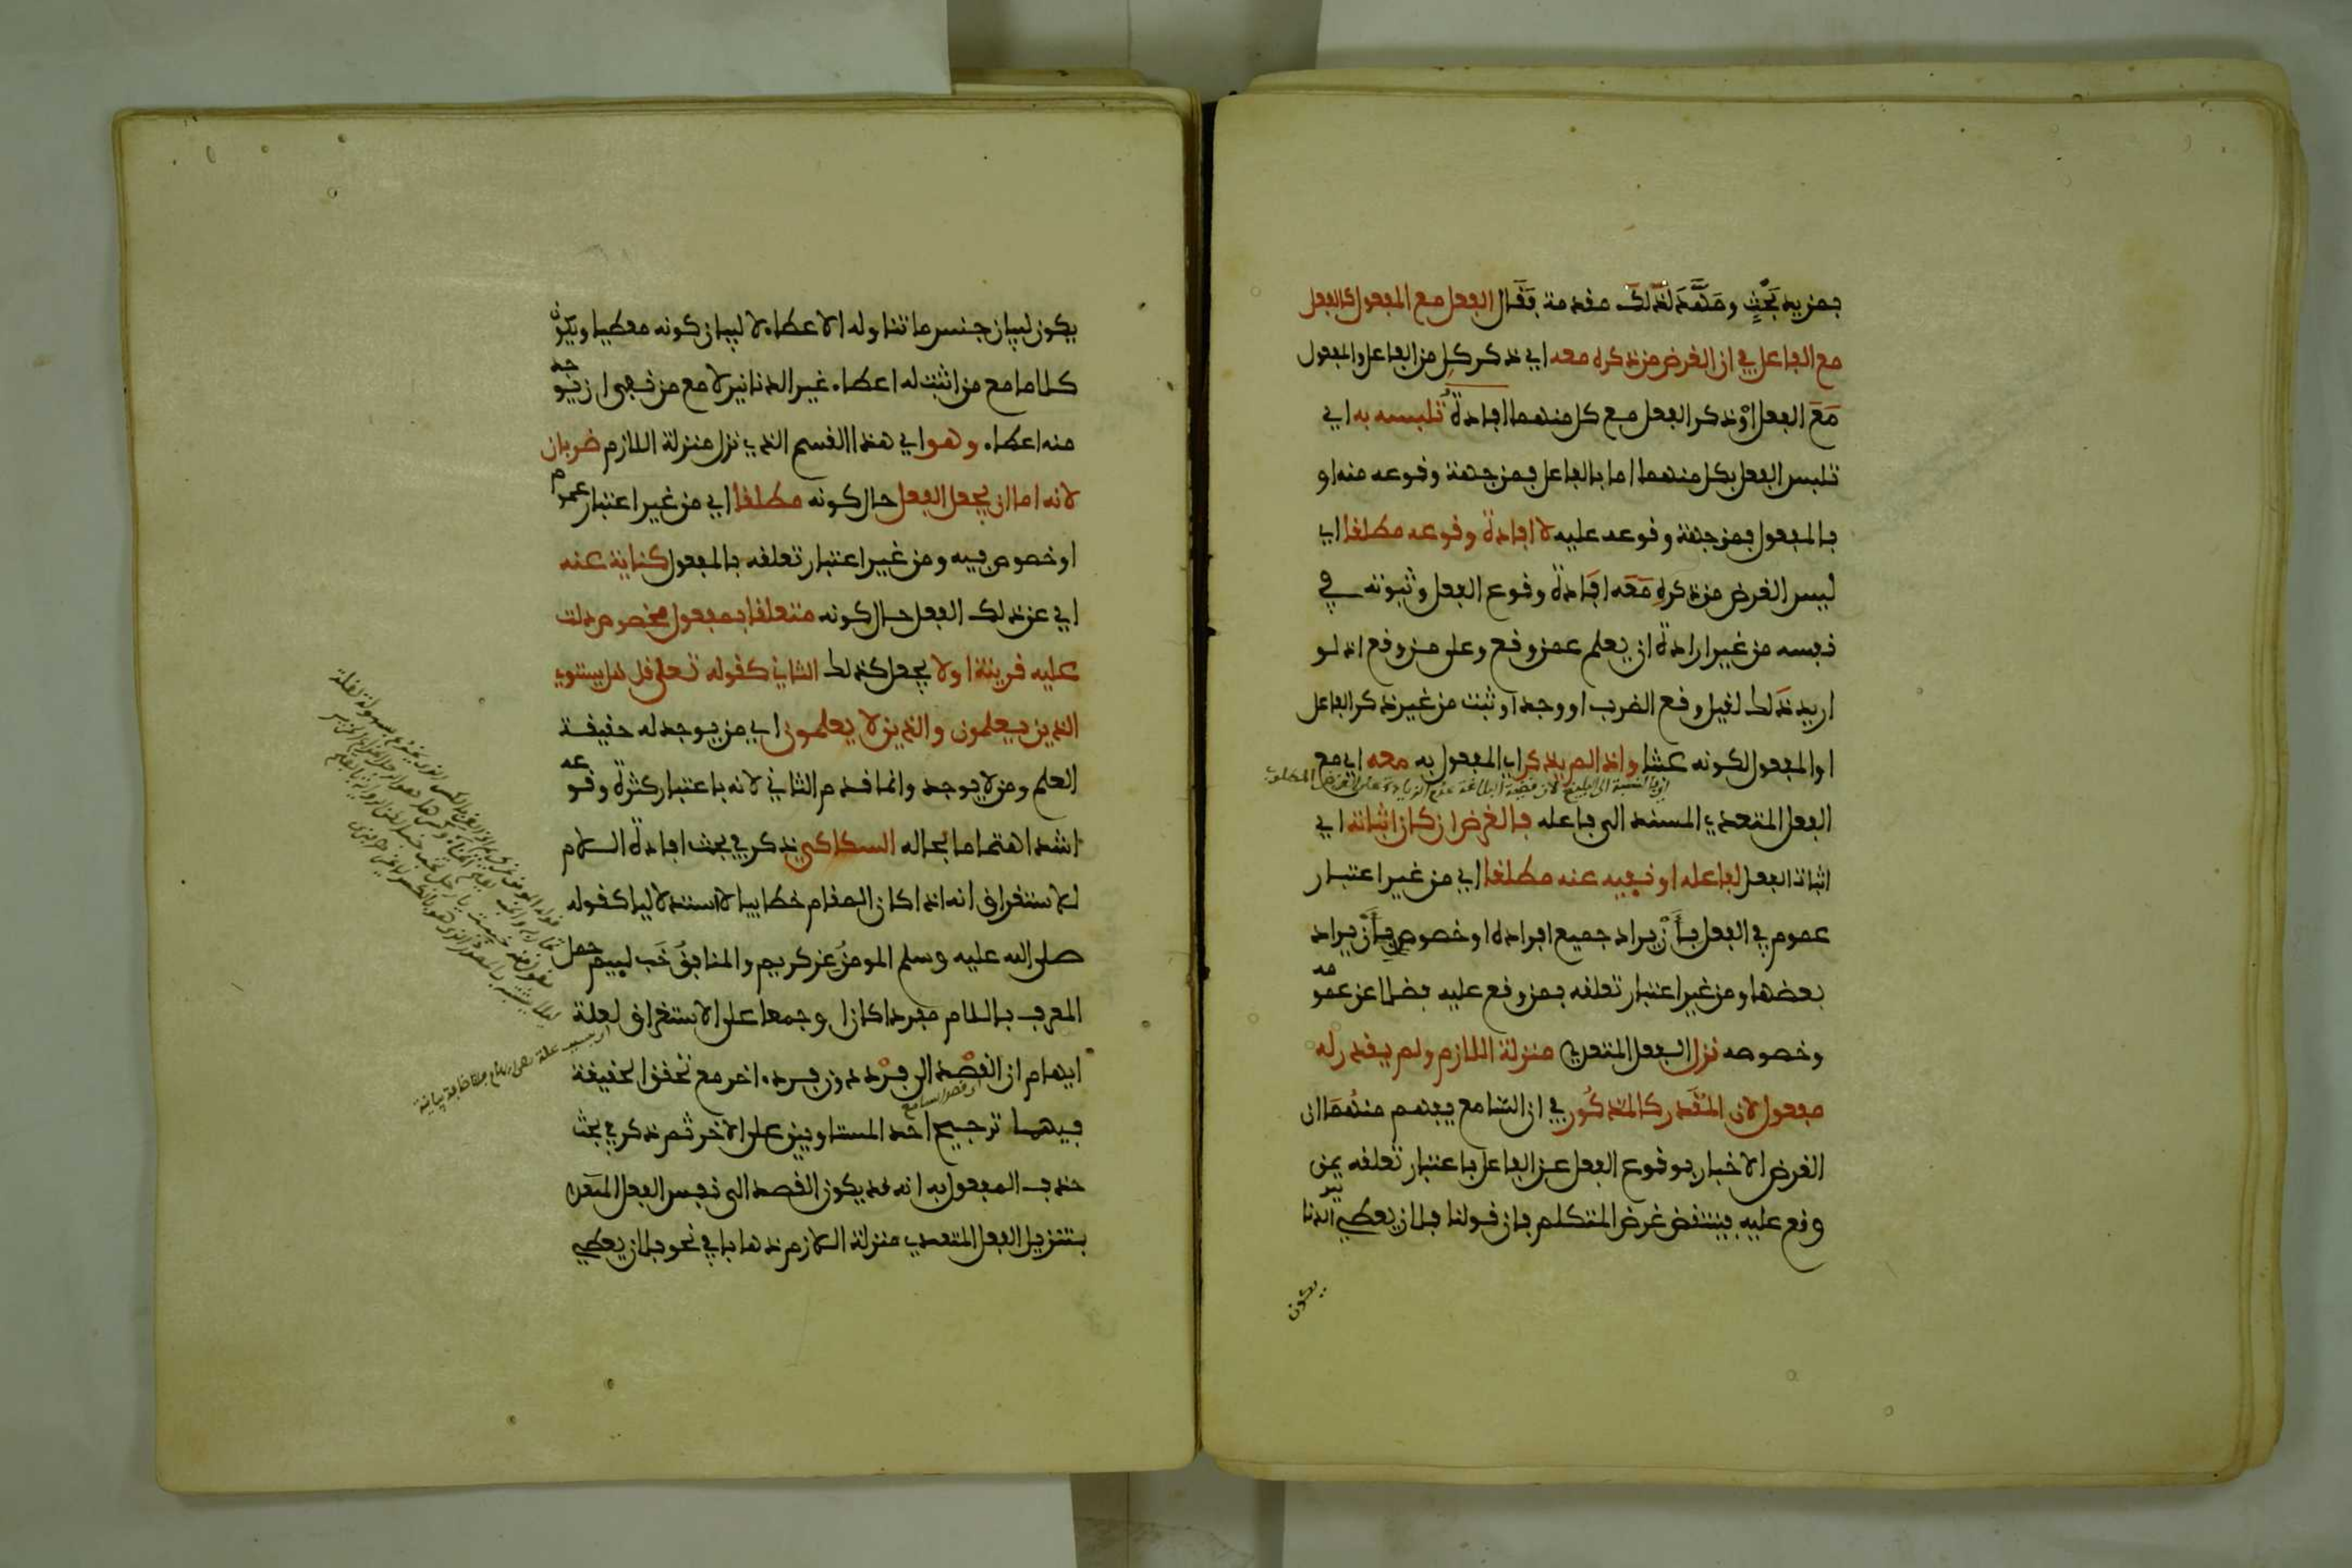 بمزيد بحث ومهد لذلك مقدمة فقال الفعل مع المفعول كالفعل
مع الفاعل في ان الغرض من ذكره معه اي ذكر كل من الفاعل والمفعول
مع الفعل او ذكر الفعل مع كل منهما افادة تلبسه به اي
تلبس الفعل بكل منهما اما بالفاعل فمن جهة وقوعه منه او
بالمفعول فمن جهة وقوعه عليه لا افادة وقوعه مطلقا اي
ليس الغرض من ذكره معه افادة وقوع الفعل وثبوته في
نفسه من غير ارادة ان يعلم عمن وقع وعلى من وقع اذ لو
اريد ذلك لقيل وقع الضرب او وجد او ثبت من غير ذكر الفاعل
او المفعول لكونه عبثا واذا لم يذكر اي المفعول به معه اي مع
الفعل المتعدي المسند الى فاعله فالغرض ان كان اثباته اي
اثبات الفعل لفاعله او نفيه عنه مطلقا اي من غير اعتبار
عموم في الفعل بان يراد جميع افراده او خصوص بان يراد
بعضها ومن غير اعتبار تعلقه بمن وقع عليه فضلا عن عمومه
وخصوصه نزل الفعل المتعدي منزلة اللازم ولم يقدر له
مفعول لان المقدر كالمذكور في ان السامع يفهم منهما ان
الغرض الاخبار بوقوع الفعل عن الفاعل باعتبار تعلقه بمن
وقع عليه فينتقض غرض المتكلم فان قولنا فلان يعطي الدنانير
يكون
يكون لبيان جنس ما تناوله الاعطاء لا لبيان كونه معطيا ويكون
كلاما مع من اثبت له اعطاء غير الدنانير لا مع من نفى ان يوجد
منه اعطاء وهو اي هذا القسم الذي نزل منزلة اللازم ضربان
لانه اما ان يجعل الفعل حال كونه مطلقا اي من غير اعتبار عموم
او خصوص فيه ومن غير اعتبار تعلقه بالمفعول كناية عنه
اي عن ذلك الفعل حال كونه متعلقا بمفعول مخصوص دلت
عليه قرينة او لا يجعل كذلك الثاني كقوله تعلى قل هل يستوي
الذين يعلمون والذين لا يعلمون اي من يوجد له حقيقة
العلم ومن لا يوجد وانما قدم الثاني لانه باعتبار كثرة وقوعه
اشد اهتماما بحاله السكاكي ذكر في بحث افادة اللام
للاستغراق انه اذا كان المقام خطابيا لا استدلاليا كقوله
صلى الله عليه وسلم المومن غر كريم والمنافق خب لييم حمل
المعرف باللام مفردا كان او جمعا على الاستغراق لعلة
ايهام ان القصد الى فرد دون فرد اخر مع تحقق الحقيقة
فيهما ترجيح احد المتساويين على الاخر ثم ذكر في بحث
حذف المفعول به انه قد يكون القصد الى نفس الفعل المتعدي
بتنزيل الفعل المتعدي منزلة اللازم ذهابا في نحو فلان يعطي